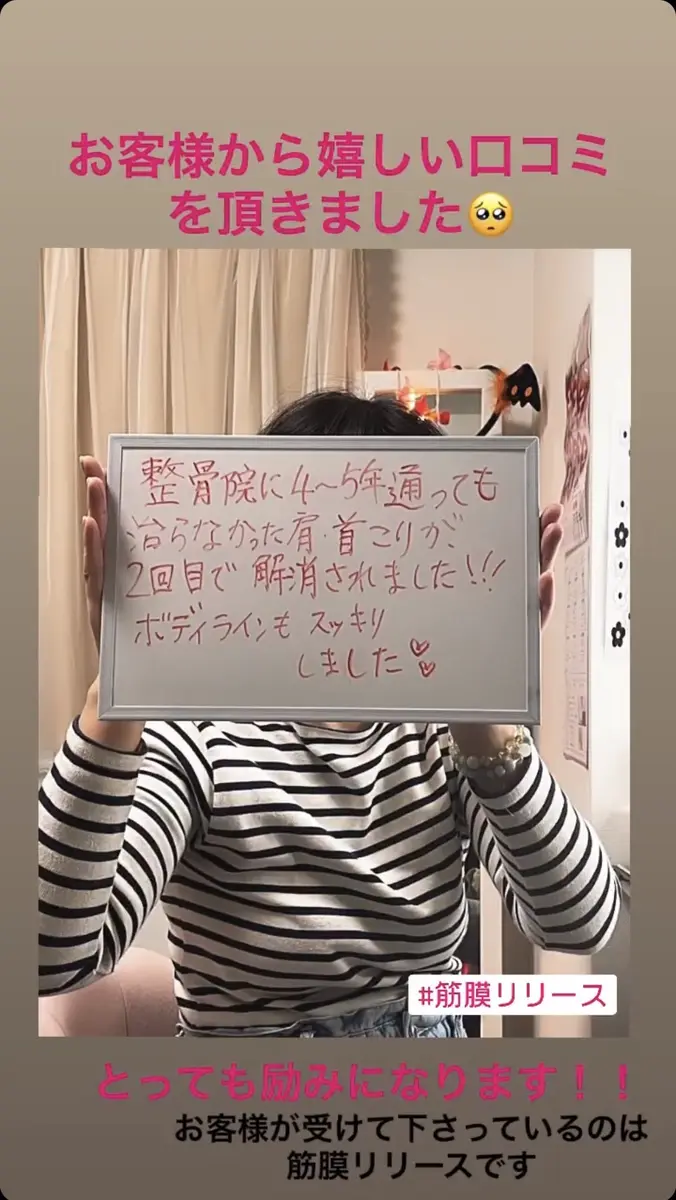 お客様から嬉しい口コミ
を頂きました🥺
整骨院に4〜5年通っても
治らなかった肩・首こりが、
2回目で解消されました!!!
ボディラインもスッキリ
しました♡♡
#筋膜リリース
とっても励みになります！！
お客様が受けて下さっているのは
筋膜リリースです